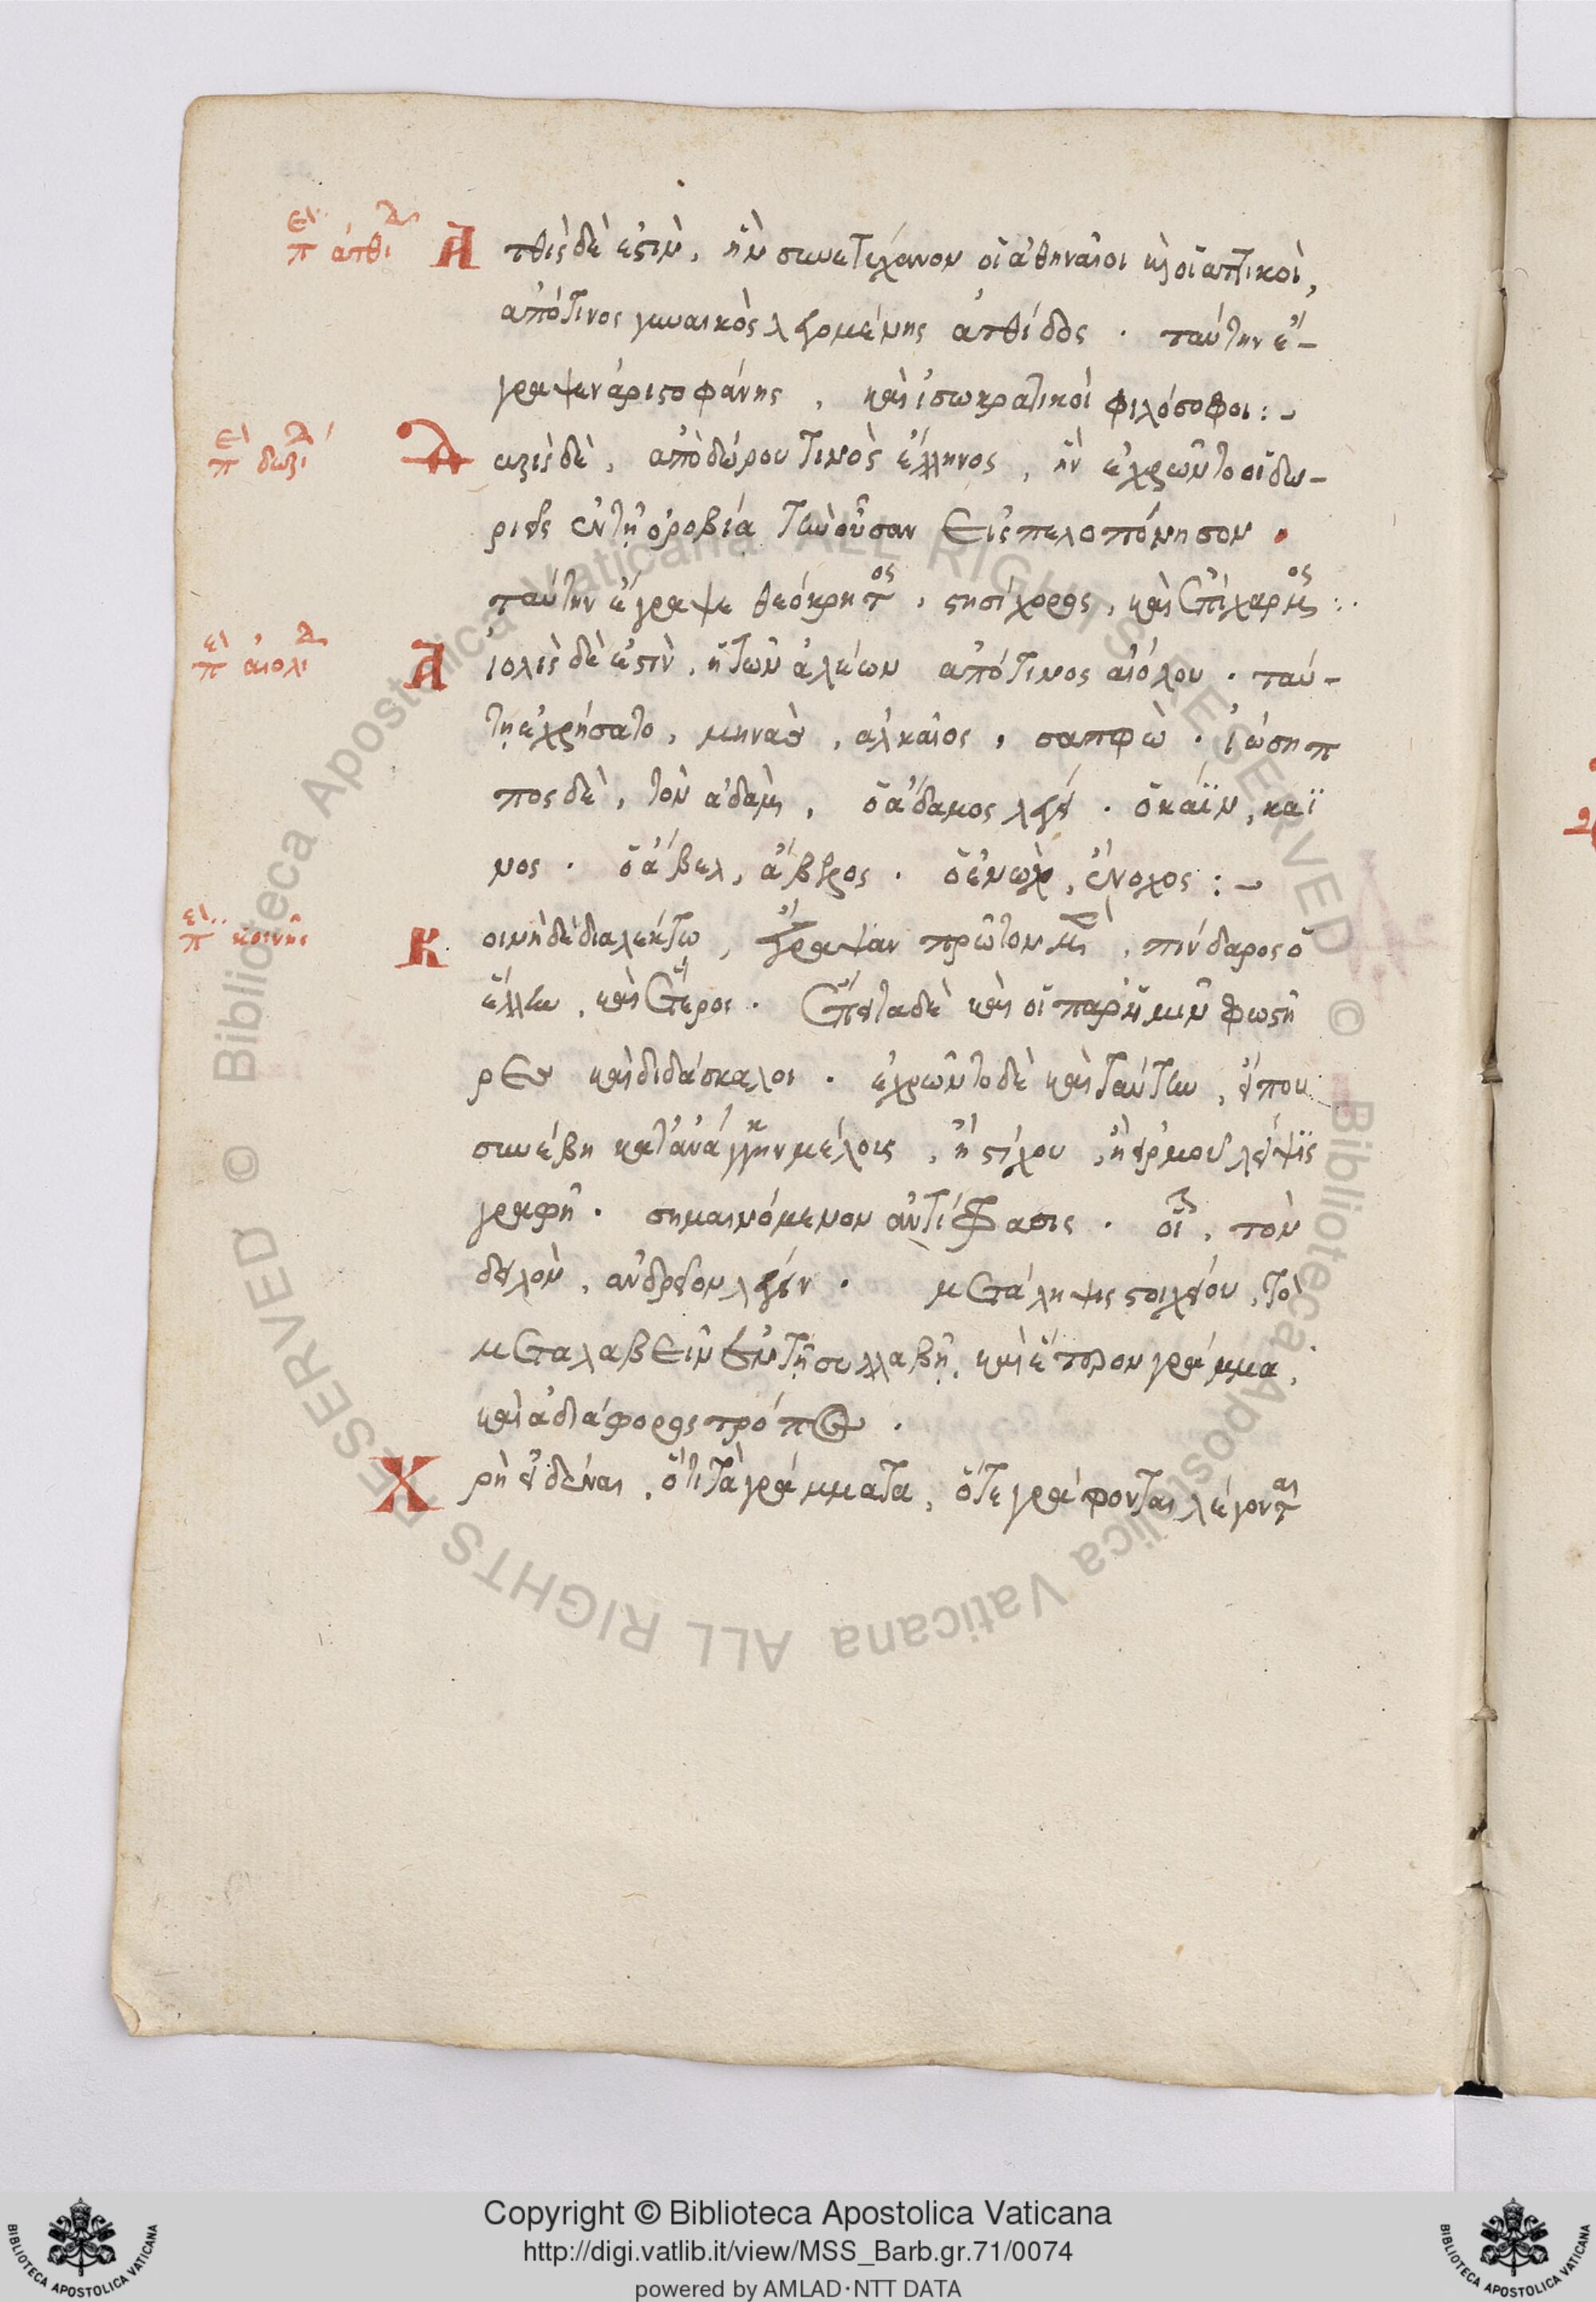 Ἀτθὶς δὲ ἐστὶν, ἣν συνετύχανον οἱ ἀθηναῖοι καὶ οἱ ἀττικοὶ,
ἀπό τινος γυναικὸς λεγομένης ἀτθίδος . ταύτην ἔ-
γραψεν ἀριστοφάνης , καὶ ἰσωκρατικοὶ φιλόσοφοι :-
Δωρὶς δὲ, ἀπὸ δώρου τινὸς ἕλληνος , ἣν ἐχρῶντο οἱ δω-
ριεῖς ἐν τῇ ὀροβία τὴν οὖσαν εἰς πελοπόνησον .
ταύτην ἔγραψε θεόκρητος , στησίχορος , καὶ ἐπίχαρμος :.
Αἰολὶς δὲ ἐστὶν , ἡ τῶν ἀλέων ἀπό τινος αἰόλου . ταύ-
τῃ ἐχρήσατο , , ἀλκαῖος , σαπφὼ . ἰώσηπ
πος δὲ , τὸν ἀδαμ , ὁ ἄδαμος λέγει . ὁ κάϊν , κάϊ
νος . ὁ ἄβελ , ἄβελος . ὁ ἐνὼχ , ἔνοχος :-
Κοινὴ δὲ διαλέκτω , ἔγραψαν πρῶτον μὲν , πίνδαρος ὁ
ἕλλην , καὶ ἕτεροι . ἔπειτα δὲ καὶ οἱ παρ ἡμῖν φωστῆ
ρες καὶ διδάσκαλοι . ἐχρῶντο δὲ καὶ ταύτην , εἴπου
συνέβη κατ ἀνάγκην μέλους , ἢ στίχου , ἢ εἱρμοῦ
γραφὴ . σημαινόμενον ἀντίφασις . οἷον , τὸν
δειλὸν , ἀνδρεῖον λέγειν . μετάληψις στοιχείου , τὸ
μεταλαβεῖν ἐν τῇ συλλαβῇ , καὶ γράμμα ,
καὶ ἀδιάφορος τρόπος .
Χρὴ εἰδέναι , ὅτι τὰ γράμματα , ὅτε γράφονται λέγονται
Copyright © Biblioteca Apostolica Vaticana
http://digi.vatlib.it/view/MSS_Barb.gr.71/0074
powered by AMLAD·NTT DATA